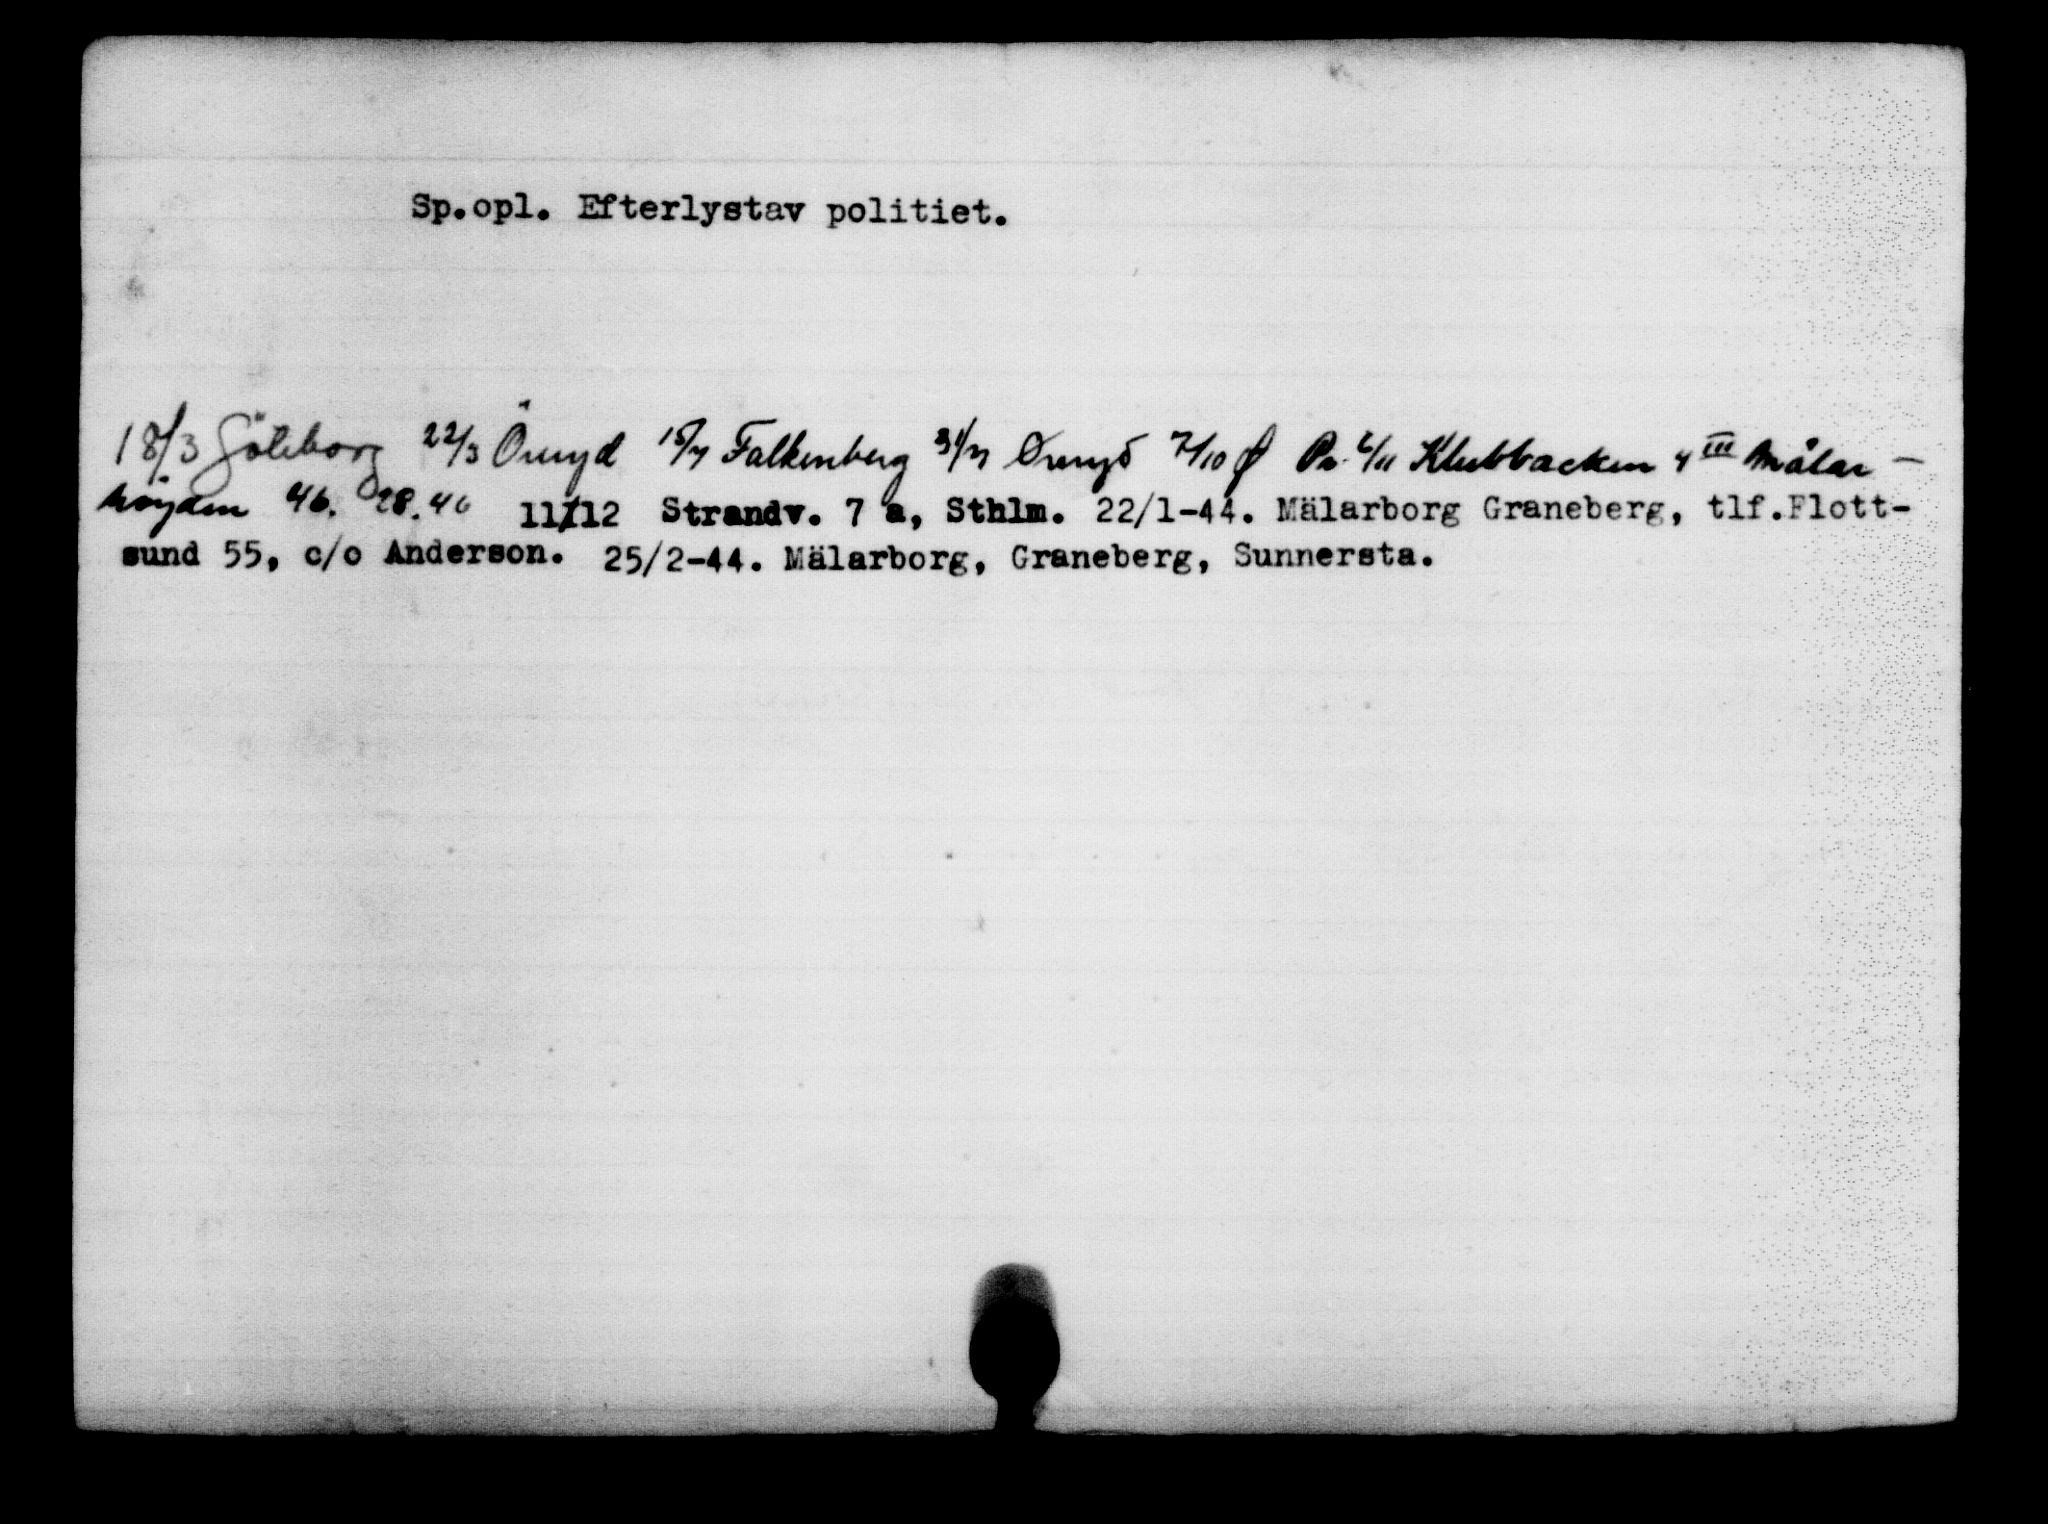 Sp.opl. Efterlystav politiet.
18/3 Göteborg 22/3 Öreryd 15/7 Falkenberg 31/7 Øreryd 7/10 Ø Pr. 2/11 Klubbacken 4 III Mälar-
höjden 46. 28.46 11/12 Strandv. 7 a, Sthlm. 22/1-44. Mälarborg Graneberg, tlf.Flott-
sund 55, c/o Anderson. 25/2-44. Mälarborg, Graneberg, Sunnersta.